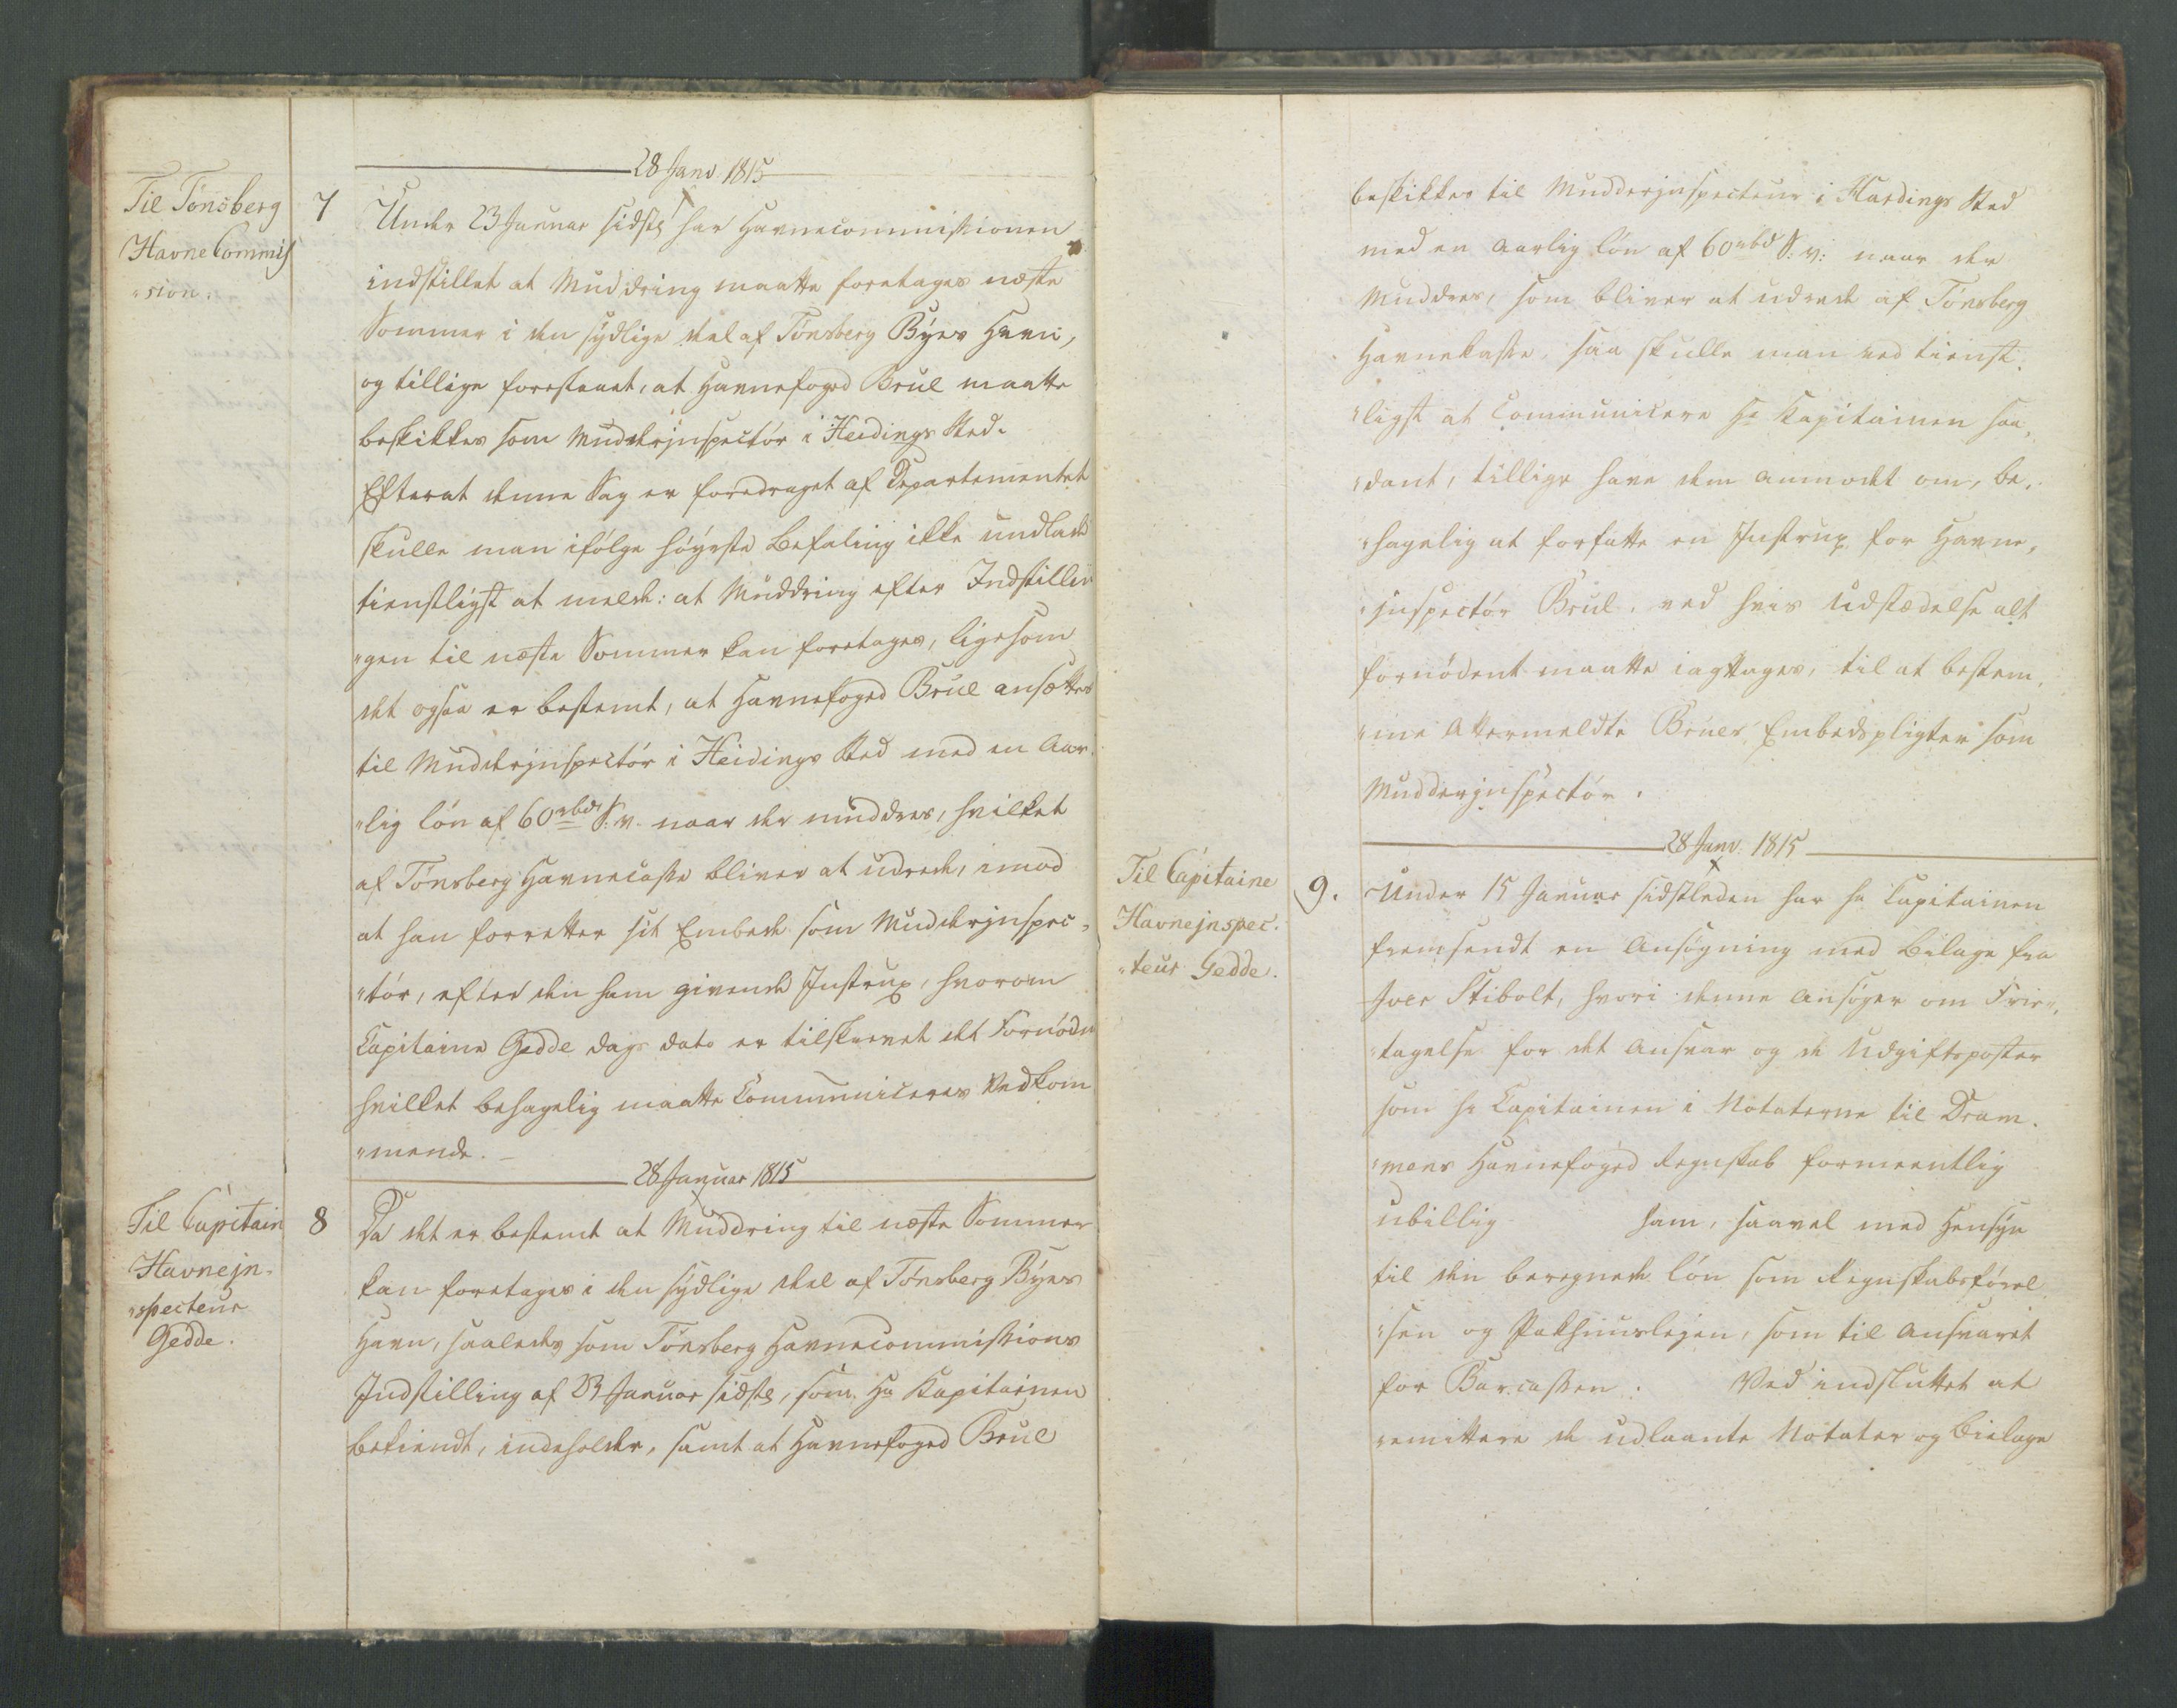 28 Janv 1815
Til Tönsberg
Havne Commis
"sion.
7
Under 23 Januar sidstl har Havnecommissionen
indstillet at Muddring maatte foretages næste
Sommer i den sydlige deel af Tönsberg Byes Havn,
og tillige foreslaaet, at Havnefoged Brul maatte
beskikkes som Mudderjnspectör i Heidings Sted.
Efterat denne Sag er foredraget af Departementet
skulle man ifölge höyeste Befaling ikke undlade
tienstligst at melde: at Muddring efter Indstillin
"gen til næste Sommer kan foretages, ligesom
det ogsaa er bestemt, at Havnefoged Brul ansættes
til Mudderjnspectör i Heidings Sted med en Aar
"lig lön af 60 rbd S. v. naar der muddres, hvilket
af Tönsberg Havnecasse bliver at udrede, imod
at han forretter sit Embede som Mudderjnspec„
"tör, efter den ham givende Instrux, hvorom
Capitaine Gedde dags dato er tilskrevet det Fornödn
hvilket behagelig maatte Communiceres Vedkom
"mende.
28 Januar 1815
Til Capitain
Havnejn„
"specteur
Gedde.
8
Da det er bestemt at Muddring til næste Sommer
kan foretages i den sydlige deel af Tönsberg Byes
Havn, saaledes som Tönsberg Havnecommissions
Indstilling af 23 Januar sidstl, som Hr Kapitainen
bekiendt, indeholder, samt at Havnefoged Brul
beskikkes til Mudderjnspecteur i Hardings Sted
med en aarlig lön af 60 rbd S: v: naar der
muddres, som bliver at udrede af Tönsberg
Havnekasse, saa skulle man ved tienst„
"ligst at Communicere Hr Kapitainen saa„
"dant, tillige have dem anmodet om, be„
"hagelig at forfatte en Instrux for Havne„
"jnspectör Brul, ved hvis Udstædelse alt
fornödent maatte iagttages, til at bestem„
"me Attermeldte Bruls Embedspligter som
Mudderjnspectör.
28 Janv. 1815
Til Capitaine
Havnejnspec.
"teur Gedde.
9.
Under 15 Januar sidstleden har Hr Capitainen
fremsendt en Ansögning med bilage fra
Joer Stibolt, hvori denne ansöger om Frie„
"tagelse for det Ansvar og de Udgiftsposter
som Hr Capitainen i Notaterne til Dram„
"mens Havnefoged Regnskab formeentlig
ubillig ham, saavel med Hensyn
til den beregnede lön som Regnskabsförel
"sen og Pakhuuslejen, som til Ansvaret
for Barcassen. Ved indsluttet at
remittere de udlaante Notater og bielage